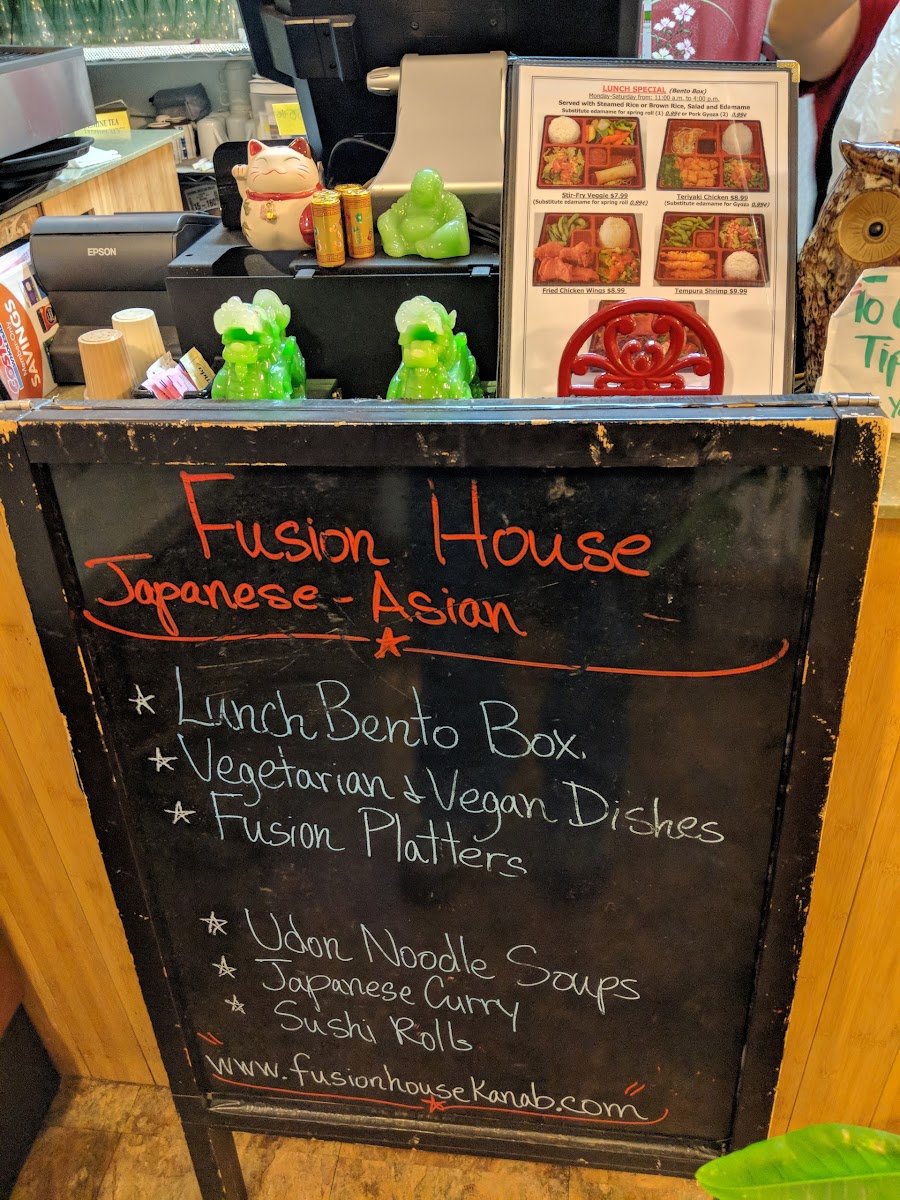 EPSON
SAVINGS
LUNCH SPECIAL (Bento Box)
Monday-Saturday from: 11:00 a.m. to 4:00 p.m.
Served with Steamed Rice or Brown Rice, Salad and Edamame
Substitute edamame for spring roll (1) 0.99¢ or Pork Gyoza (2) 0.99¢
Stir-Fry Veggie $7.99
(Substitute edamame for spring roll 0.99¢)
Teriyaki Chicken $8.99
(Substitute edamame for Gyoza 0.99¢)
Fried Chicken Wings $8.99
Tempura Shrimp $9.99
To
Tip
Fusion House
Japanese - Asian
Lunch Bento Box.
Vegetarian & Vegan Dishes
Fusion Platters
Udon Noodle Soups
Japanese Curry
Sushi Rolls
"www.fusionhousekanab.com"